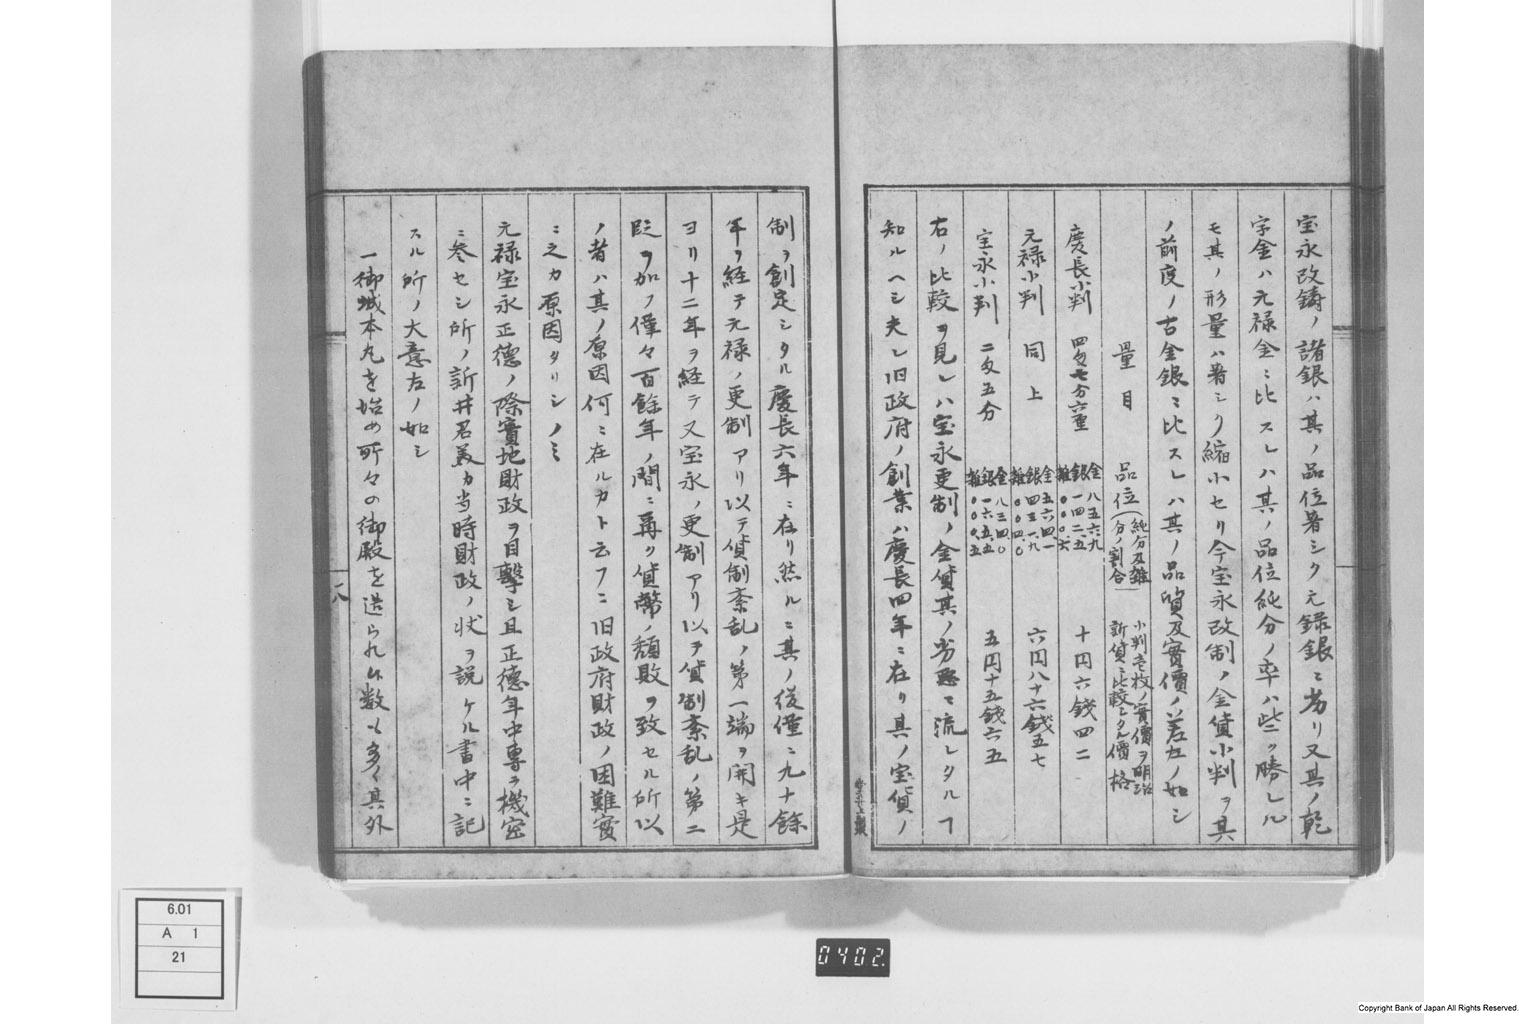 宝永改鋳ノ諸銀ハ其ノ品位著シク元録銀ニ劣リ又其ノ乾
字金ハ元禄金ニ比スレハ其ノ品位純分ノ率ハ些ク勝レル
モ其ノ形量ハ著シク縮小セリ今宝永改制ノ金貨小判ヲ其
ノ前度ノ古金銀ニ比スレハ其ノ品質及実價ノ差左ノ如シ
量目 品位(純分及雑分ノ割合) 小判壱枚ノ實價ヲ明治新貨ニ比較シタル價格
慶長小判 四匁七分六重 金八五六.九 銀一四二.五 雑〇〇〇.六 十円六銭四二
元禄小判 同上 金五六四.一 銀四三一.九 雑〇〇四.〇 六円八十六銭五七
宝永小判 二匁五分 金八三四.〇 銀一六五.五 雑〇〇〇.五 五円十五銭六五
右ノ比較ヲ見レハ宝永更制ノ金貨其ノ劣悪ニ流レタルヿ
知ルヘシ夫レ旧政府ノ創業ハ慶長四年ニ在リ其ノ宝貨ノ
制ヲ創定シタル慶長六年ニ在リ然ルニ其ノ後僅ニ九十餘
年ヲ経テ元禄ノ更制アリ以テ貨制紊乱ノ第一端ヲ開キ是
ヨリ十二年ヲ経テ又宝永ノ更制アリ以テ貨制紊乱ノ第二
段ヲ加フ僅々百餘年ノ間ニ再ヒ貨幣ノ頽敗ヲ致セル所以
ノ者ハ其ノ原因何ニ在ルカト云フニ旧政府財政ノ困難實
ニ之カ原因タリシノミ
元禄宝永正徳ノ際實地財政ヲ目撃シ且正徳年中専ラ機密
ニ参セシ所ノ新井君美カ当時財政ノ状ヲ説ケル書中ニ記
スル所ノ大意左ノ如シ
一御城本丸を始め所々の御殿を造られ候数も多く其外
一八
6.01
A 1
21
0402.
Copyright Bank of Japan All Rights Reserved.